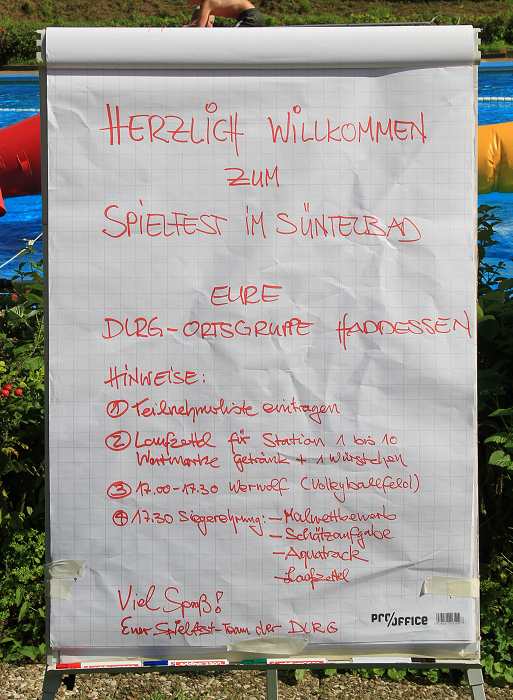 HERZLICH WILLKOMMEN
ZUM
SPIELFEST IM SÜNTELBAD
EURE
DLRG-ORTSGRUPPE HADDESSEN
HINWEISE:
① Teilnehmerliste eintragen
② Laufzettel für Station 1 bis 10
Wertmarke Getränk + 1 Würstchen
③ 17.00-17.30 Werwolf (Volleyballfeld)
④ 17.30 Siegerehrung: - Malwettbewerb
- Schätzaufgabe
- Aquatrack
- Laufzettel
Viel Spaß!
Euer Spielfest-Team der DLRG
PRO/OFFICE